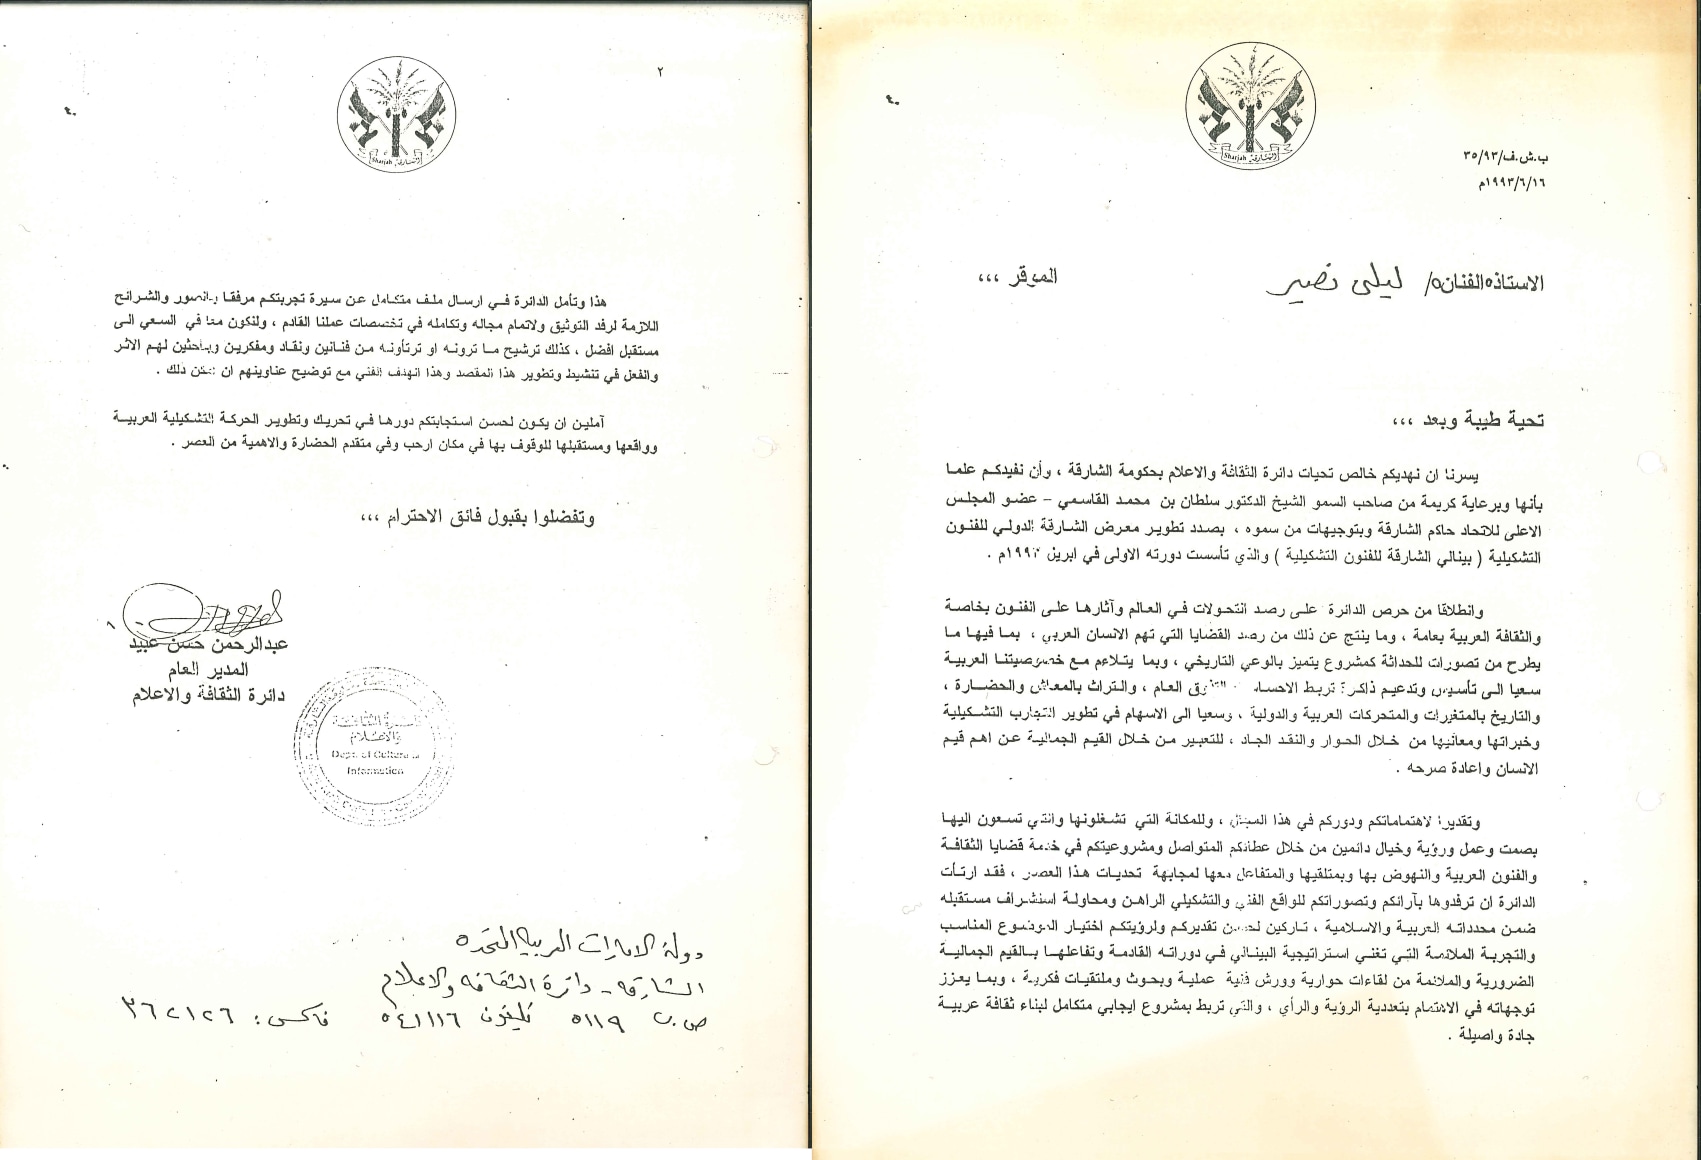 ب.ش.ف/٣٥/٩٣
١٩٩٣/٦/١٦م
Sharjah الشارقة
الاستاذه الفنانه/ ليلى نصير الموقر ،،،
تحية طيبة وبعد ،،،
يسرنا ان نهديكم خالص تحيات دائرة الثقافة والاعلام بحكومة الشارقة ، وأن نفيدكم علما
بأنها وبرعاية كريمة من صاحب السمو الشيخ الدكتور سلطان بن محمد القاسمي – عضو المجلس
الاعلى للاتحاد حاكم الشارقة وبتوجيهات من سموه ، بصدد تطوير معرض الشارقة الدولي للفنون
التشكيلية ( بينالي الشارقة للفنون التشكيلية ) والذي تأسست دورته الاولى في ابريل ١٩٩٣م .
وانطلاقا من حرص الدائرة على رصد التحولات في العالم وآثارها على الفنون بخاصة
والثقافة العربية بعامة ، وما ينتج عن ذلك من رصد القضايا التي تهم الانسان العربي ، بما فيها ما
يطرح من تصورات للحداثة كمشروع يتميز بالوعي التاريخي ، وبما يتلاءم مع خصوصيتنا العربية
سعيا الى تأسيس وتدعيم ذاكرة تربط الاحساس العام ، والتراث بالمعاش والحضارة ،
والتاريخ بالمتغيرات والمتحركات العربية والدولية ، وسعيا الى الاسهام في تطوير التجارب التشكيلية
وخبراتها ومعانيها من خلال الحوار والنقد الجاد ، للتعبير من خلال القيم الجمالية عن اهم قيم
الانسان واعادة صرحه .
وتقديرا لاهتماماتكم ودوركم في هذا المجال ، وللمكانة التي تشغلونها والتي تسعون اليها
بصمت وعمل ورؤية وخيال دائمين من خلال عطائكم المتواصل ومشروعيتكم في خدمة قضايا الثقافة
والفنون العربية والنهوض بها وبمتلقيها والمتفاعل معها لمجابهة تحديات هذا العصر ، فقد ارتأت
الدائرة ان ترفدوها بآرائكم وتصوراتكم للواقع الفني والتشكيلي الراهن ومحاولة استشراف مستقبله
ضمن محدداته العربية والاسلامية ، تاركين لحسن تقديركم ولرؤيتكم اختيار الموضوع المناسب
والتجربة الملائمة التي تغني استراتيجية البينالي في دوراته القادمة وتفاعلها بالقيم الجمالية
الضرورية والملائمة من لقاءات حوارية وورش فنية عملية وبحوث وملتقيات فكرية ، وبما يعزز
توجهاته في الاهتمام بتعددية الرؤية والرأي ، والتي تربط بمشروع ايجابي متكامل لبناء ثقافة عربية
جادة واصيلة .
٢
Sharjah الشارقة
هذا وتأمل الدائرة في ارسال ملف متكامل عن سيرة تجربتكم مرفقا بالصور والشرائح
اللازمة لرفد التوثيق ولاتمام مجاله وتكامله في تخصصات عملنا القادم ، ولنكون معا في السعي الى
مستقبل افضل ، كذلك ترشيح ما ترونه او ترتأونه من فنانين ونقاد ومفكرين وباحثين لهم الاثر
والفعل في تنشيط وتطوير هذا المقصد وهذا الهدف الفني مع توضيح عناوينهم ان امكن ذلك .
آملين ان يكون لحسن استجابتكم دورها في تحريك وتطوير الحركة التشكيلية العربية
وواقعها ومستقبلها للوقوف بها في مكان ارحب وفي متقدم الحضارة والاهمية من العصر .
وتفضلوا بقبول فائق الاحترام ،،،
عبدالرحمن حسن عبيد
المدير العام
دائرة الثقافة والاعلام
دائرة الثقافة
والاعلام
Dept. of Culture &
Information
دولة الامارات العربية المتحده
الشارقه - دائرة الثقافه والاعلام
ص.ب ٥١١٩ تليفون ٥٤١١١٦ فاكس: ٣٦٢١٢٦